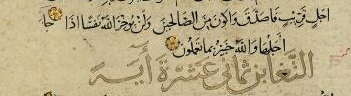 اجل قريب فاصدق واكون من الصالحين ولن يوخر الله نفسا اذا جا
اجلها والله خبير بما تعملون
التغابن ثماني عشرة آية